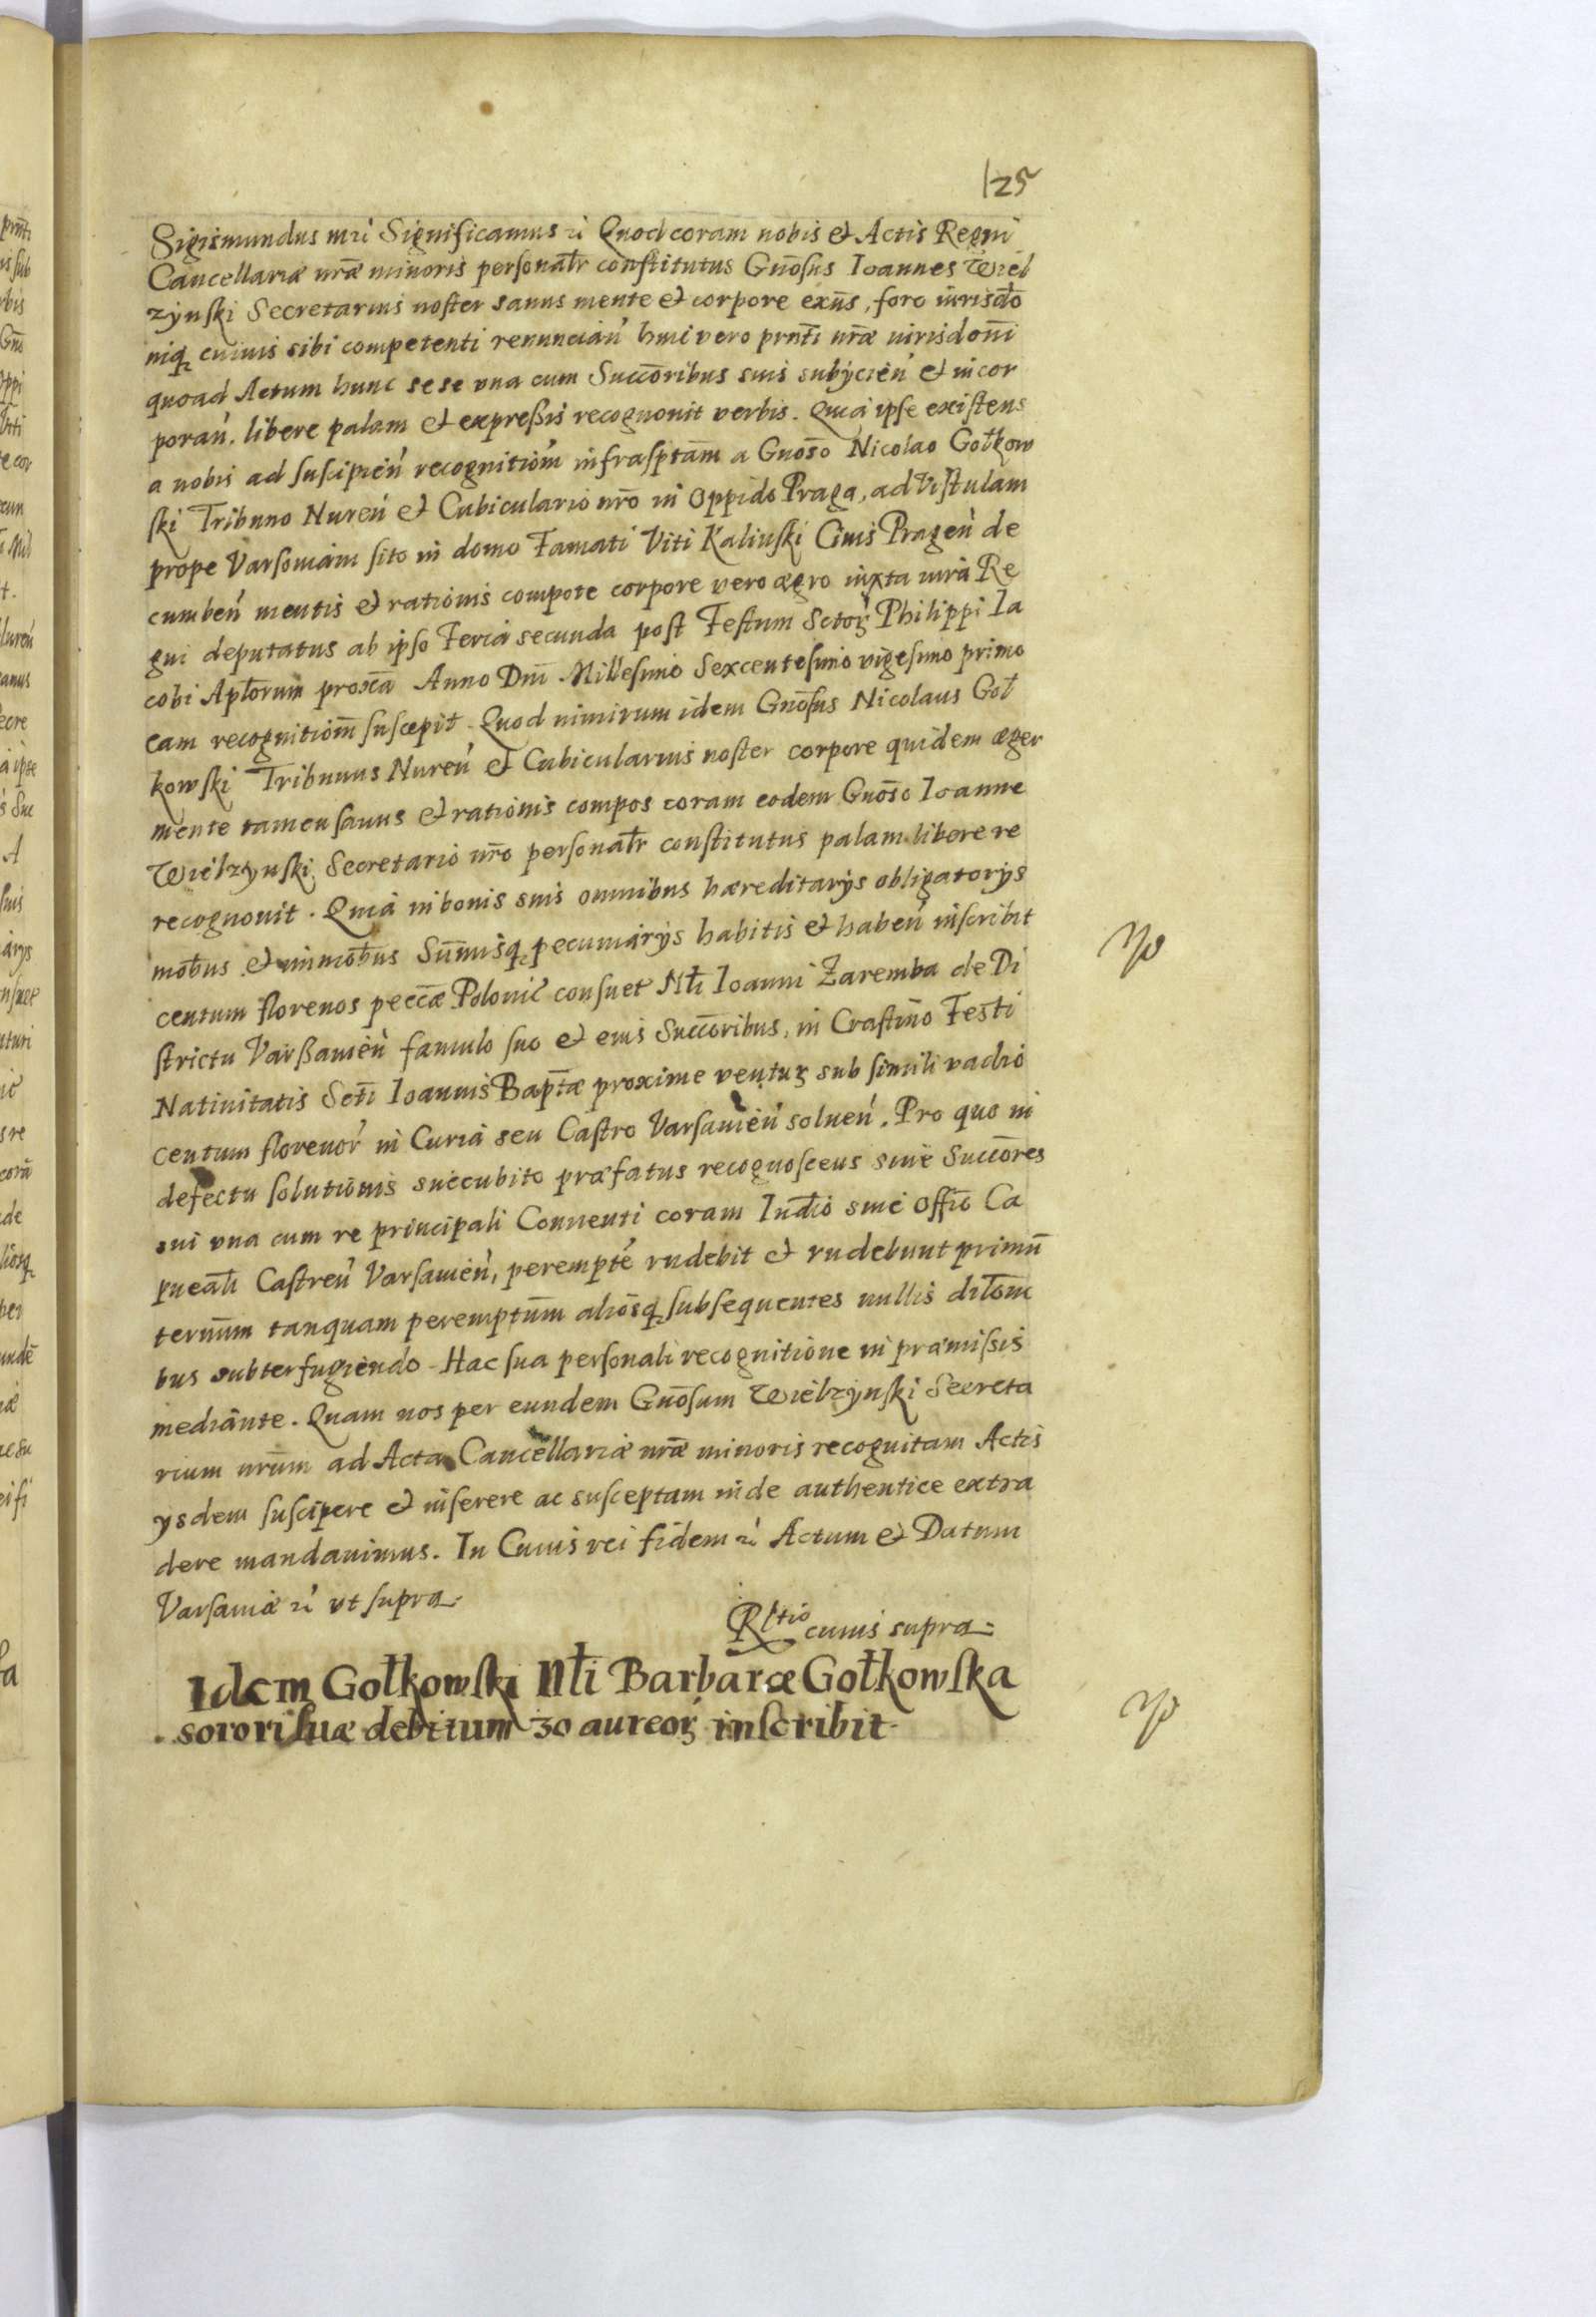 125
Sigismundus etc̀ Significamus etc̀ Quod coram nobis et Actis Regni
Cancellariæ nr̄æ minoris personal̄r constitutus Gn̄osus Ioannes Wiel
zynski Secretarius noster sanus mente et corpore exn̄s, foro iurisdō
niq₂ cuiuis sibi competenti renuncian̍ huic vero prn̄ti nr̄æ iurisdon̄i
quoad Actum hunc sese vna cum Succōribus suis subÿcien̍ et incor
poran̍. libere palam et expreßis recognouit verbis. Quia ipse existens
a nobis ad suscipien̍ recognitiom̍ infrasptām a Gnosō Nicolao Gołkow
ski Tribuno Nuren̍ et Cubiculario nr̄o in Oppido Praga, ad Vistulam
prope Varsouiam sito in domo Famati Viti Kaliuski Ciuis Pragen̍ de
cumben̍ mentis et rationis compote corpore vero ægro iuxta iura Re
gni deputatus ab ipso Feria secunda post Festum Sctoꝝ Philippi Ia
cobi Apl̄orum proxā Anno Dnī Millesimo Sexcentesimo vigesimo primo
eam recognitiom̄ suscepit. Quod nimirum idem Gnōsus Nicolaus Goł
kowski Tribunus Nuren̍ et Cubicularius noster corpore quidem æger
mente tamen sanus et rationis compos coram eodem Gnōso Ioanne
Wielzynski Secretario nr̄o personal̄r constitutus palam libere re
recognouit. Quia in bonis suis omnibus hæreditarÿs obligatorÿs
mob̄us et immob̄us Sum̄isq₂ pecuniarÿs habitis et haben̍ inscribit
centum florenos peccǣ Polonic̍ consuet Nl̄i Ioanni Zaremba de Di
strictu Varßauien̍ famulo suo et eius Succōribus, in Crastino Festi
Natiuitatis Sctī Ioannis Bap̄tæ proxime ventuꝝ sub simili vadio
centum florenor̍ in Curia seu Castro Varsauien̍ soluen̍. Pro quo in
defectu solutionis succubito præfatus recognoscens siue Succōres
sui vna cum re principali Conuenti coram Iudīo siue Offīo Ca
pneal̄i Castren̍ Varsauien̍, perempte̍ rndebit et rndebunt primū
ternūm tanquam peremptūm aliōsq₂ subsequentes nullis dilōni
bus subterfugiendo. Hac sua personali recognitione in præmissis
mediante. Quam nos per eundem Gnōsum Wielzynski Secreta
rium nrūm ad Acta Cancellariæ nr̄æ minoris recognitam Actis
ÿsdem suscipere et inserere ac susceptam inde authentice extra
dere mandauimus. In Cuius rei fidem etc̀ Actum et Datum
Varsauiæ etc̀ vt supra.
Rltio cuius supra
Idem Gołkowski Nl̄i Barbaræ Gołkowska
sorori suæ debitum 30 aureoꝝ inscribit.